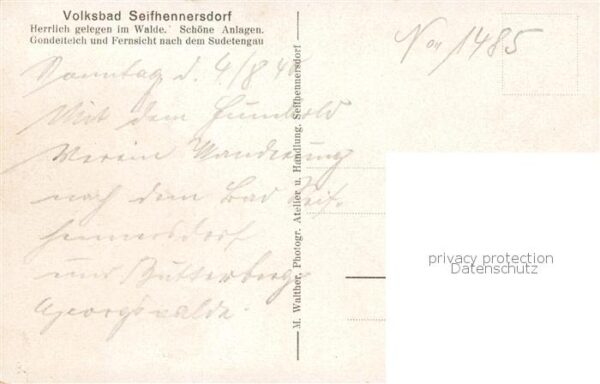 Volksbad Seifhennersdorf
Herrlich gelegen im Walde. Schöne Anlagen.
Gondelteich und Fernsicht nach dem Sudetengau
Sonntag d. 4/8 40
Mit dem Humbold
Verein Wanderung
nach dem Bad Seif-
hennersdorf
und Butterberge
Georgswalde.
M. Walther, Photogr. Atelier u. Handlung, Seifhennersdorf
1485
privacy protection
Datenschutz